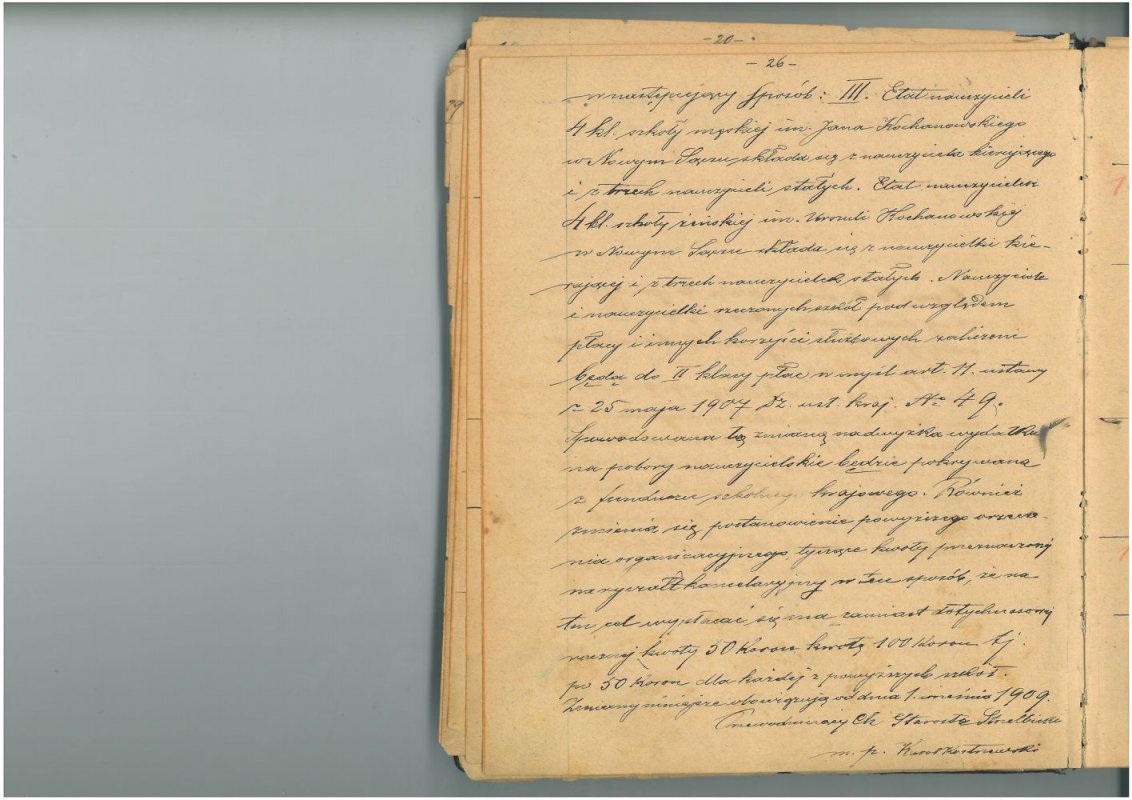 - 20 -
- 26 -
w następujący sposób: III. Etat nauczycieli
4 kl. szkoły męskiej im. Jana Kochanowskiego
w Nowym Sączu składa się z nauczyciela kierującego
i z trzech nauczycieli stałych. Etat nauczycielek
4 kl. szkoły żeńskiej im. Urszuli Kochanowskiej
w Nowym Sączu składa się z nauczycielki kie-
rującej i z trzech nauczycielek stałych. Nauczyciele
i nauczycielki rzeczonych szkół pod względem
płacy i innych korzyści służbowych zaliczeni
będą do II klasy płac w myśl art. 11. ustawy
z 25 maja 1907 Dz. ust. kraj. No 49.
Spowodowana tą zmianą nadwyżka wydatku
na pobory nauczycielskie będzie pokrywana
z funduszu szkolnego krajowego. Również
zmienia się postanowienie powyższego orzecze-
nia organizacyjnego, tyczące kwoty przeznaczonej
na ryczałt kancelaryjny w ten sposób, że na
ten cel wypłacać się ma zamiast dotychczasowej
rocznej kwoty 50 Koron kwotę 100 Koron tj.
po 50 Koron dla każdej z powyższych szkół.
Zmiany niniejsze obowiązują od dnia 1. września 1909.
Przewodniczący Ck Starosta
m. p.